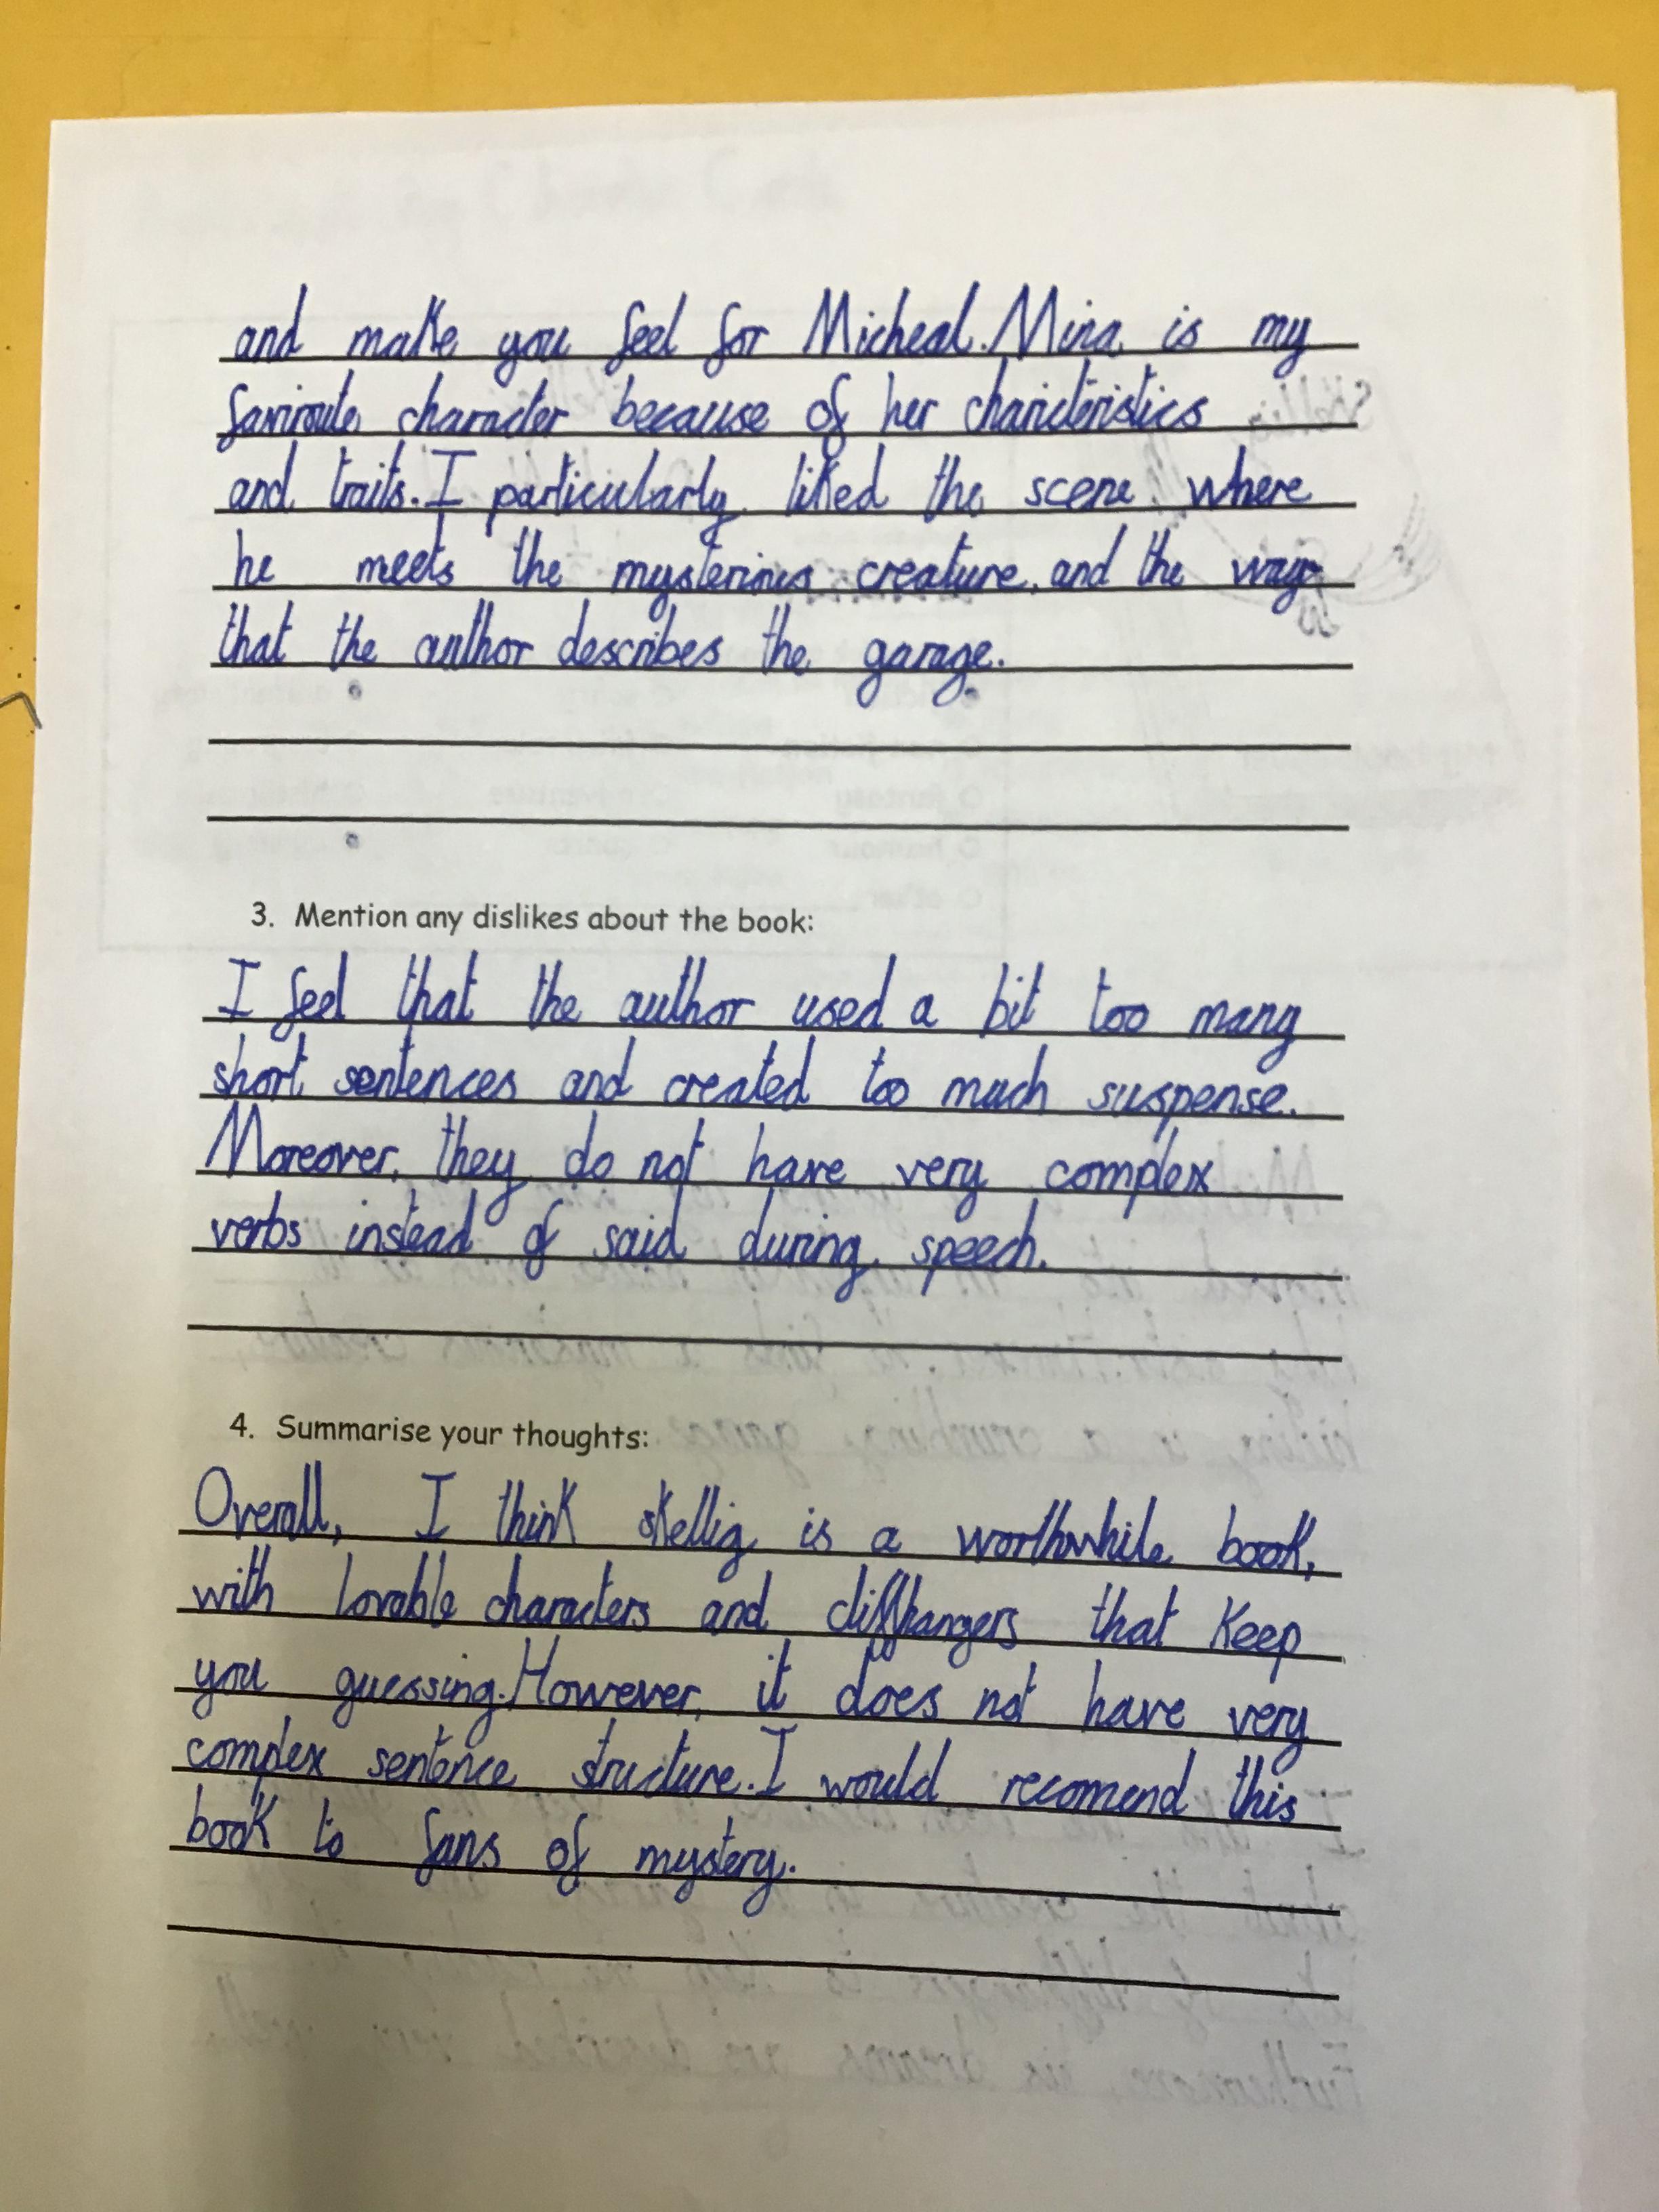 and make you feel for Micheal. Mina is my
faviroute character because of her charicteristics
and traits. I particularly liked the scene where
he meets the mysterious creature, and the way
that the author describes the garage.
3. Mention any dislikes about the book:
I feel that the author used a bit too many
short sentences and created too much suspense.
Moreover, they do not have very complex
verbs instead of said during speech.
4. Summarise your thoughts:
Overall, I think skellig is a worthwhile book,
with lovable characters and cliffhangers that keep
you guessing. However, it does not have very
complex sentence structure. I would recomend this
book to fans of mystery.